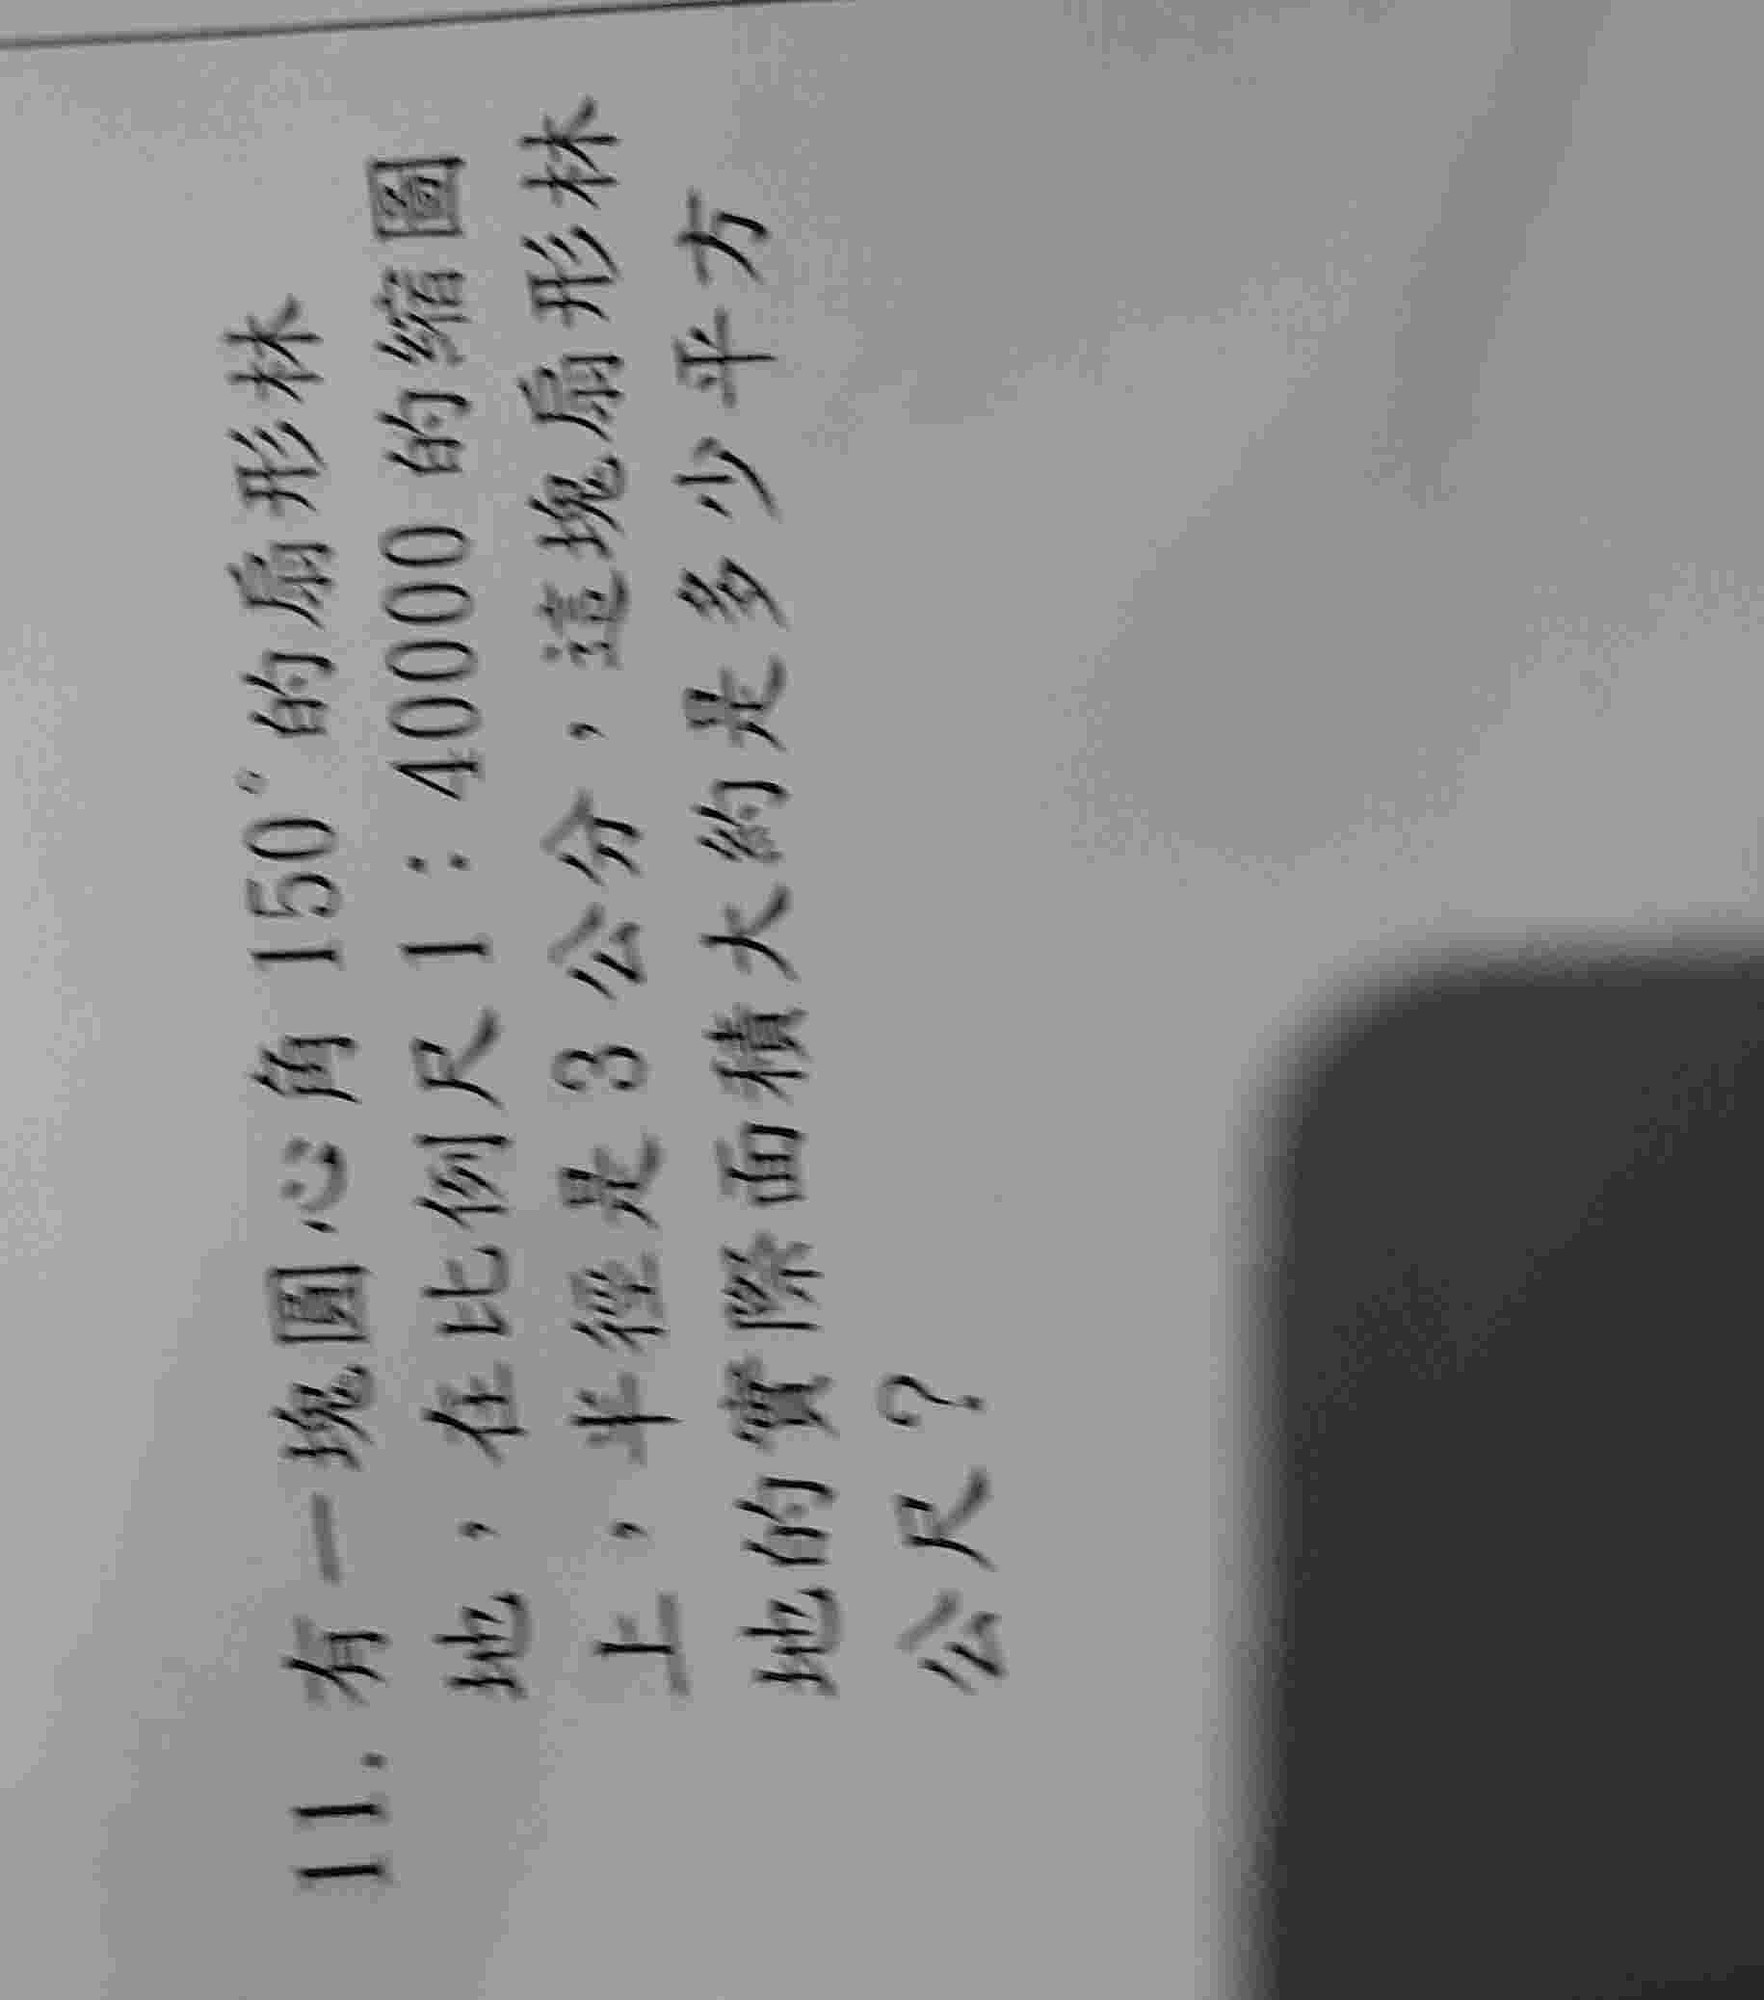 11. 有一塊圓心角 150°的扇形林
地，在比例尺 1：40000 的縮圖
上，半徑是 3 公分，這塊扇形林
地的實際面積大約是多少平方
公尺？